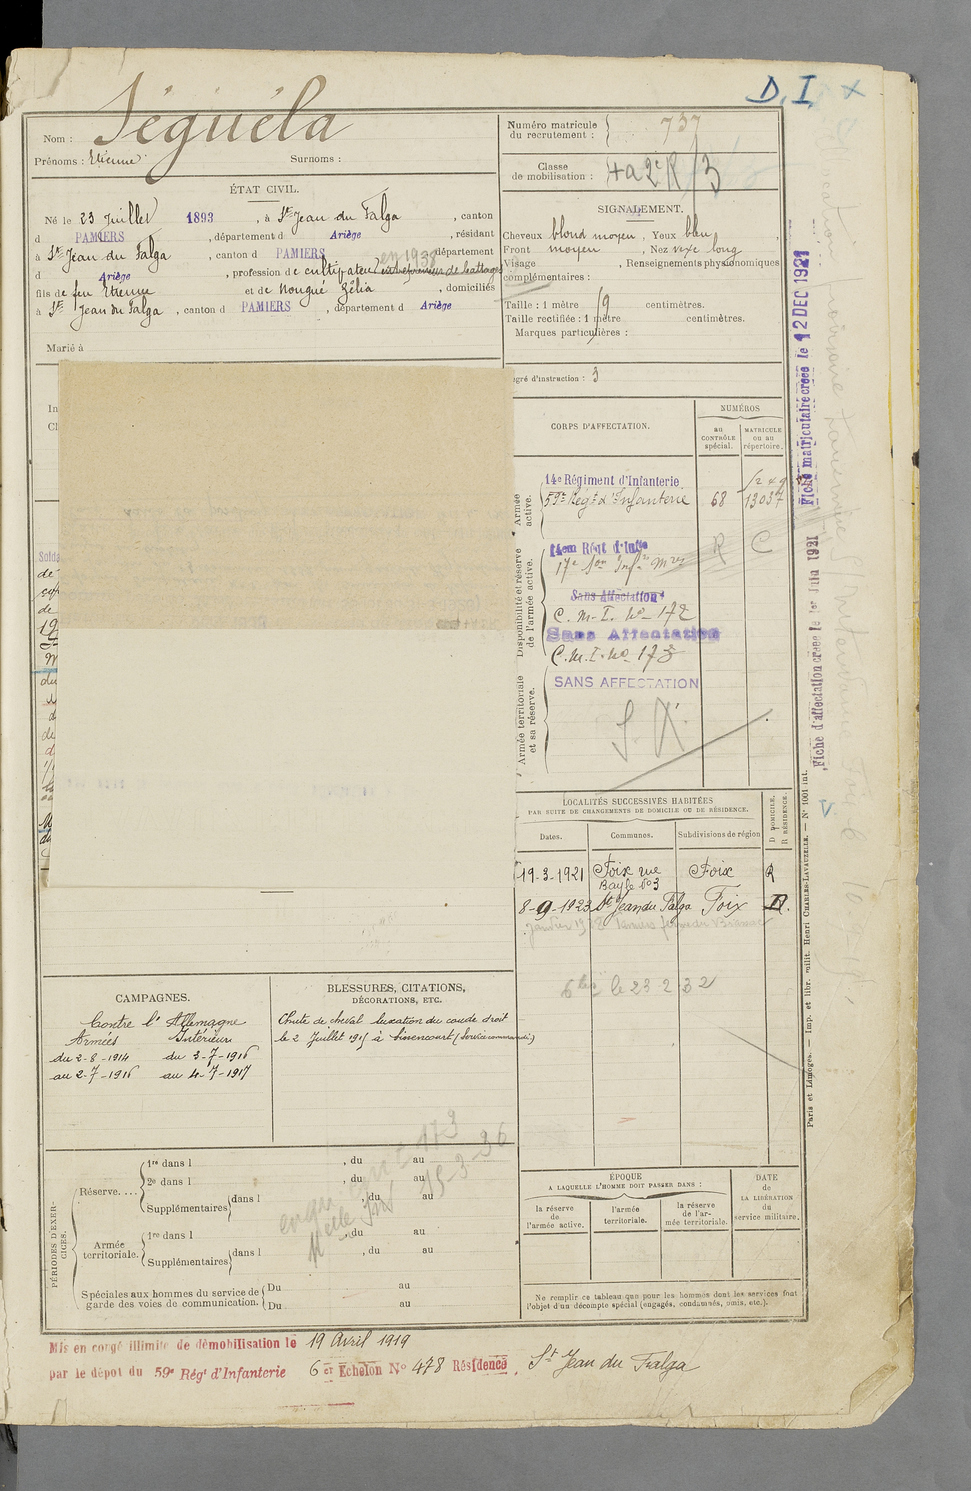 D. I. x
Séguéla
Nom :
Prénoms : Etienne Surnoms :
Numéro matricule
du recrutement : 737
Classe
de mobilisation :
ÉTAT CIVIL.
Né le 23 Juillet 1893, à St Jean du Falga, canton
d PAMIERS, département d Ariège, résidant
à St Jean du Falga, canton d PAMIERS département
en 1938
d Ariège, profession de cultivateur (entrepreneur de battages
fils de feu Etienne et de Nougué Zélia, domiciliés
à St Jean du Falga, canton d PAMIERS, département d Ariège
Marié à
SIGNALEMENT.
Cheveux blond moyen, Yeux bleu,
Front moyen, Nez vexe long
Visage , Renseignements physionomiques
complémentaires :
Taille : 1 mètre 69 centimètres.
Taille rectifiée : 1 mètre centimètres.
Marques particulières :
d'instruction : 3
Fiche matriculaire créée le 12 DEC 1921
Fiche d'affectation créée le 1er Juin 1921
CORPS D'AFFECTATION.
NUMÉROS
au
CONTRÔLE
spécial.
MATRICULE
ou au
répertoire.
Armée
active.
14e Régiment d'Infanterie
59e Régt d'Infanterie 68 13037
Disponibilité et réserve
de l'armée active.
14em Régt d'Infie
R C
17e Son Inf. Mres
Sans Affectation
C. M. I. No 172
Sans Affectation
C. M. I. No 173
Armée territoriale
et sa réserve.
SANS AFFECTATION
LOCALITÉS SUCCESSIVES HABITÉES
PAR SUITE DE CHANGEMENTS DE DOMICILE OU DE RÉSIDENCE.
Dates. Communes. Subdivisions de région
D DOMICILE.
R RÉSIDENCE.
19-3-1921 Foix rue Foix R
Bayle No 3
8-9-1923 St Jean du Falga Foix R.
le 23 2 32
CAMPAGNES.
Contre l'Allemagne
Armées Intérieur
du 2-8-1914 du 3-7-1916
au 2-7-1916 au 4-7-1917
BLESSURES, CITATIONS,
DÉCORATIONS, ETC.
Chute de cheval luxation du coude droit
le 2 Juillet 1915 à Simencourt (Service commandé.)
PÉRIODES D'EXER-
CICES.
Réserve....
1re dans l , du au
2e dans l , du au
Supplémentaires dans l , du au
Armée
territoriale.
1re dans l , du au
Supplémentaires dans l , du au
Spéciales aux hommes du service de
garde des voies de communication.
Du au
Du au
173
15-3-36
ÉPOQUE
A LAQUELLE L'HOMME DOIT PASSER DANS :
la réserve
de
l'armée active.
l'armée
territoriale.
la réserve
de l'ar-
mée territoriale.
DATE
de
LA LIBÉRATION
du
service militaire.
Ne remplir ce tableau que pour les hommes dont les services font
l'objet d'un décompte spécial (engagés, condamnés, omis, etc.).
Paris et Limoges. — Imp. et libr. milit. Henri CHARLES-LAVAUZELLE. — N° 1001 int.
Mis en congé illimité de démobilisation le 19 Avril 1919
par le dépôt du 59e Régt d'Infanterie 6 er Echelon N° 478 Résidence St Jean du Falga